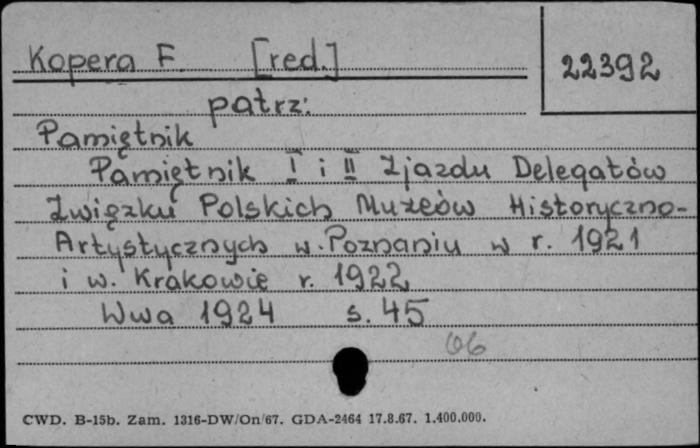 Kopera F. [red.]
22392
patrz:
Pamiętnik
Pamiętnik I i II Zjazdu Delegatów
Związku Polskich Muzeów Historyczno-
Artystycznych w. Poznaniu w r. 1921
i w. Krakowie r. 1922
Wwa 1924 s. 45
06
CWD. B-15b. Zam. 1316-DW/On/67. GDA-2464 17.8.67. 1.400.000.